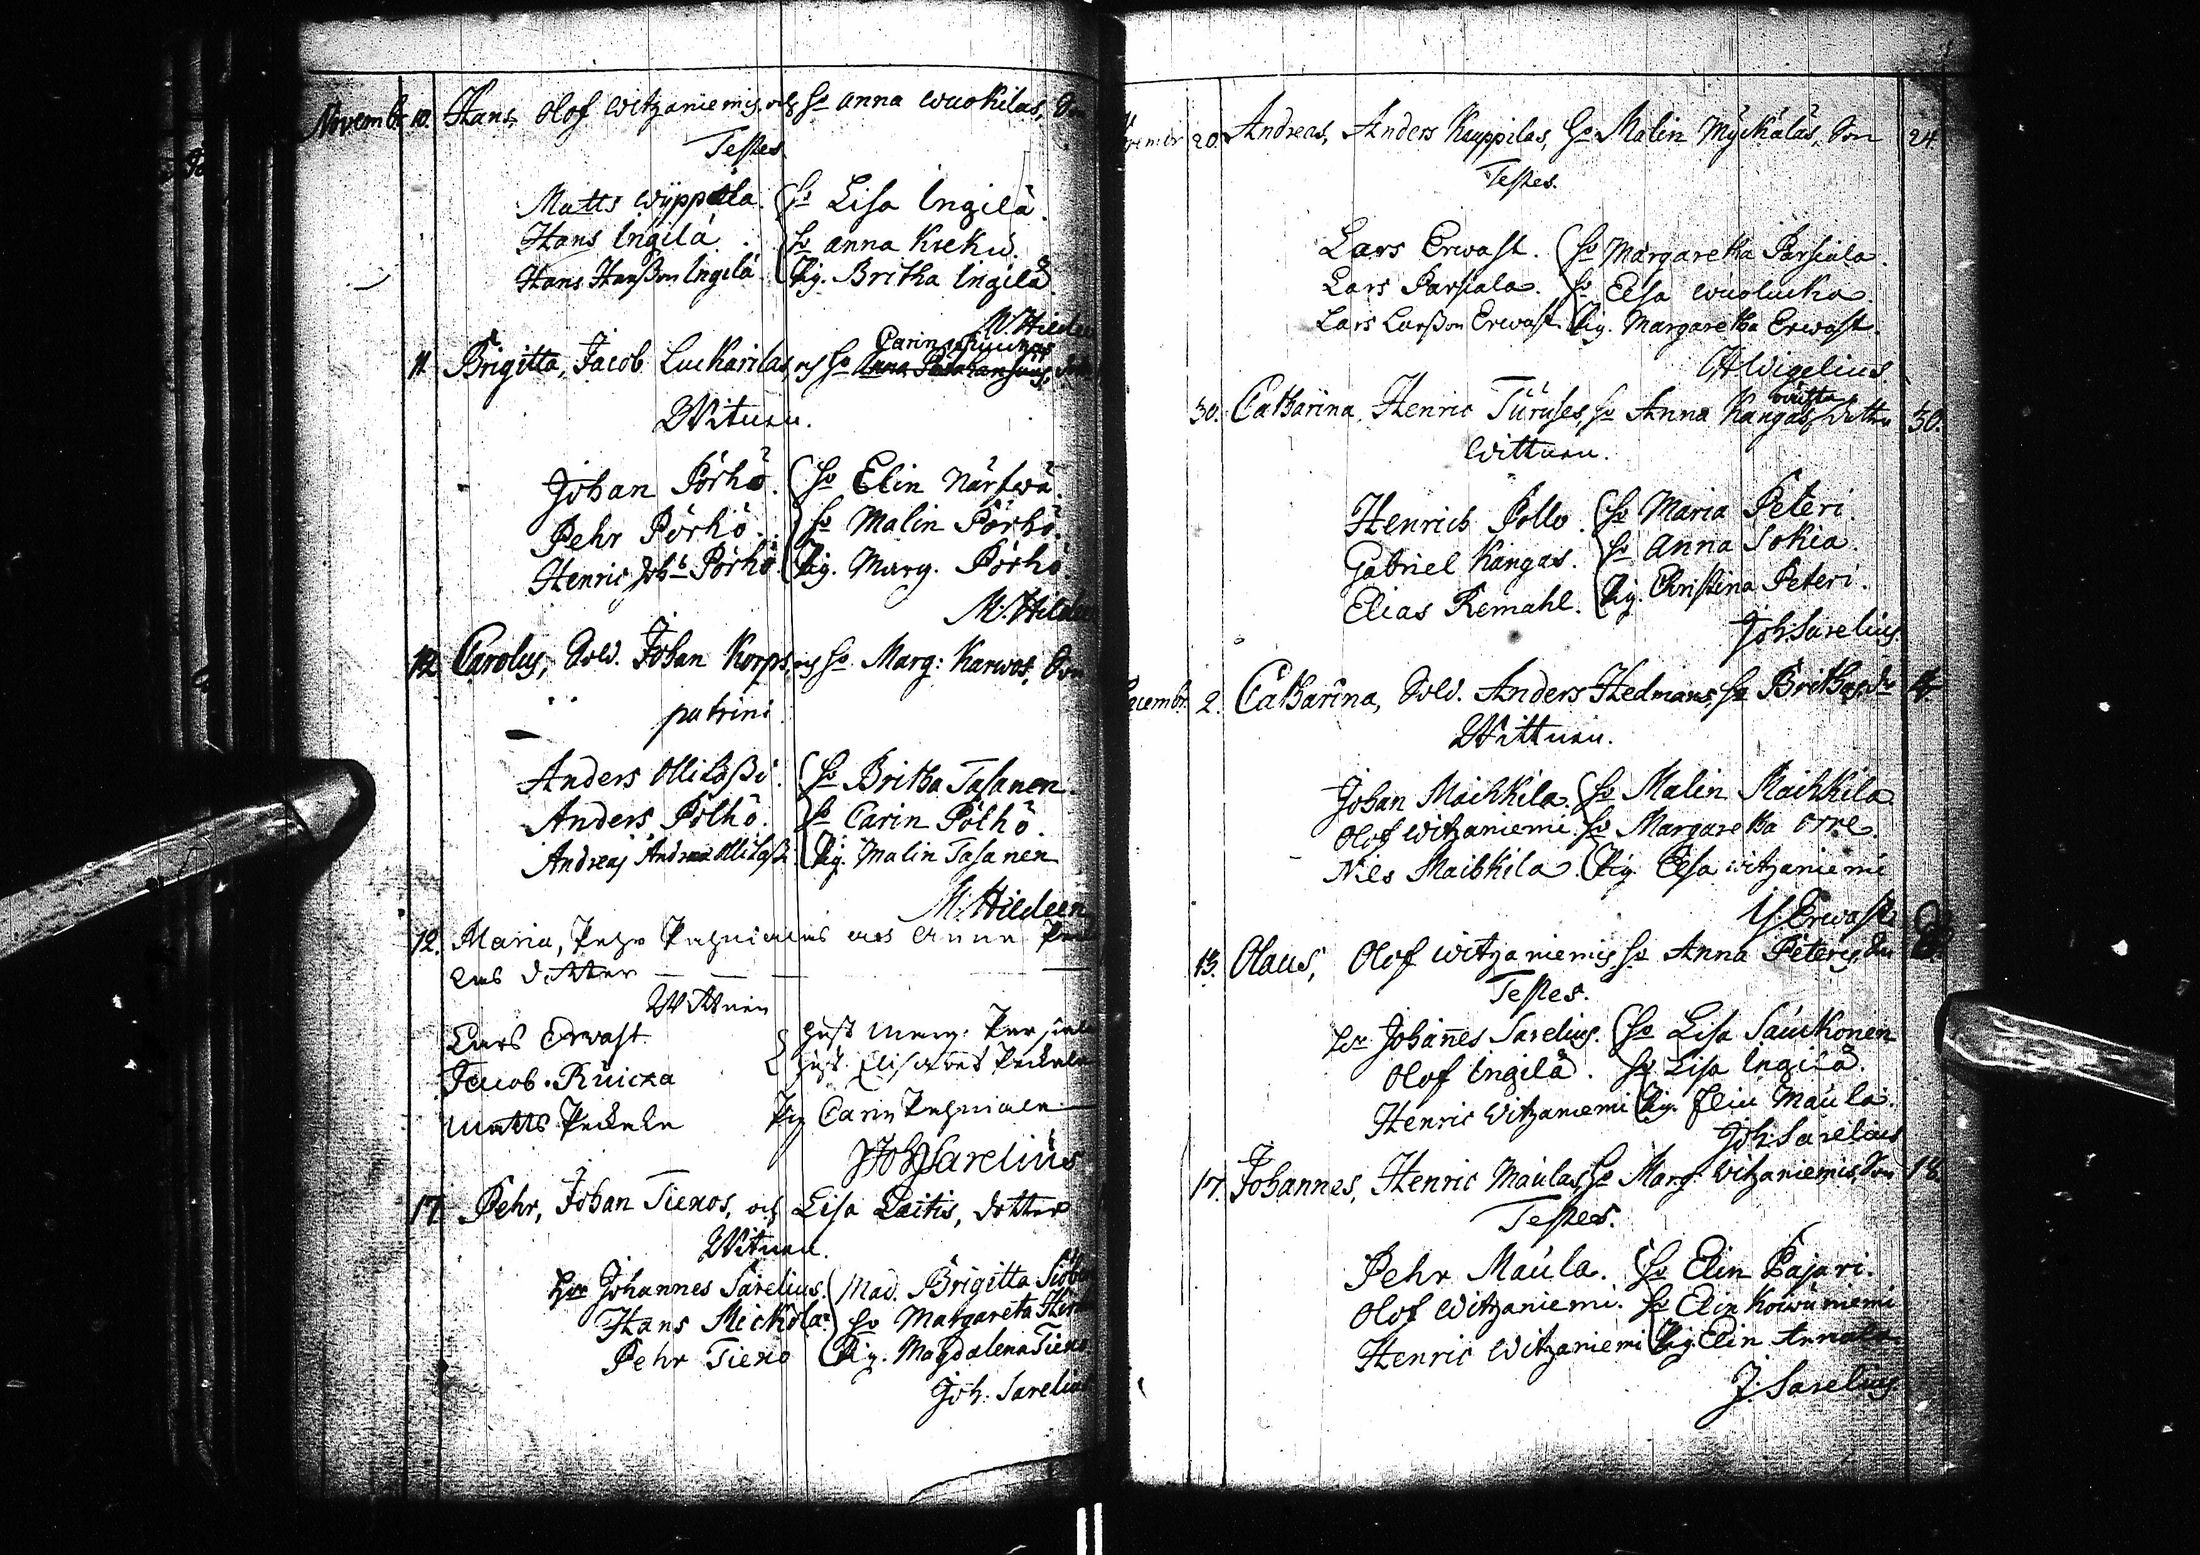 Novembr 10. Hans, Olof Witzaniemis, och Ho Anna Wuokilas, Son
Testes
Matts Wyppola. Ho Lisa Ingilä.
Hans Ingilä. Ho Anna Krekü.
Hans Hanßon Ingilä. Pig. Britha Ingilä.
M. Hildeen
11. Brigitta, Jacob Luckarilas, och Ho Carin
Wittnen.
Johan Pörhö. Ho Elin Närfwä.
Pehr Pörhö. Ho Malin Pörhö.
Henric Joh: Pörhö. Pig. Marg. Pörhö.
M. Hildeen
12. Carolus, Sold. Johan Korps, och Ho Marg: Karwos, Son
patrini.
Anders Ollilaßi. Ho Britha Tasanen.
Anders Pölhö. Ho Carin Pölhö.
Andreas Ollilaßi. Pig. Malin Tasanen
M. Hildeen
12. Maria, Pehr och Anna
dotter
Wittnen
Lars Erwast. Hust Marg: Parsiala
Jacob Ruicka Hust. Elisabet Peckala
Matts Peckala Pig Carin
Joh Sarelius
17. Pehr, Johan Tiexos, och Lisa Laitis, dotter
Wittnen.
Herr Johannes Sarelius. Mad. Brigitta
Hans Mickola. Ho Margareta
Pehr Tiexo Pig. Magdalena Tiexo.
Joh. Sarelius
20. Andreas, Anders Kauppilas, Ho Malin Myckäläs, Son 24.
Testes.
Lars Erwast. Ho Margaretha Parsiala.
Lars Parsiala. Ho Elsa Wuolucka.
Lars Larßon Erwast. Pig. Margaretha Erwast.
Wigelius.
30. Catharina, Henric Turuses, Ho Anna Kangas, Dotter 30.
Wittnen.
Henrich Pollo. Ho Maria Peteri.
Gabriel Kangas. Ho Anna Sokia.
Elias Remahl. Pig. Christina Peteri.
Joh: Sarelius
Decembr. 2. Catharina, Sold. Anders Hedmans, Ho Brithas, dr
Wittnen.
Johan Maikkila. Ho Malin Maikkila
Olof Witzaniemi. Ho Margaretha Orre.
Nils Maikkila. Pig. Elsa Witzaniemi
Erwast
13. Olaus, Olof Witzaniemis, Ho Anna Peteris, Son
Testes.
Hr Johannes Sarelius. Ho Lisa Saukonen
Olof Ingilä. Ho Lisa Ingilä.
Henric Witzaniemi Pig. Elin Maula.
Joh: Sarelius
17. Johannes, Henric Maulas, Ho Marg: Witzaniemis, Son 18.
Testes.
Pehr Maula. Ho Elin Pajari.
Olof Witzaniemi. Ho Elin Koiwuniemi
Henric Witzaniemi Pig. Elin Annala
J. Sarelius